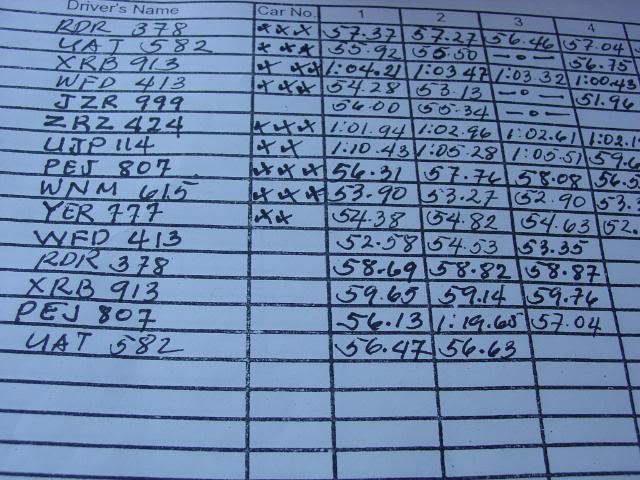 Driver's Name Car No. 1 2 3 4
RDR 378 xxx 57.37 57.27 56.46 57.04
UAT 582 xxx 55.92 55.50 —o— 56.75
XRB 913 x xx 1:04.21 1:03.47 1:03.32 1:00.43
WFD 413 xxx 54.28 53.13 —o— 51.96
JZR 999 56.00 55.34 —o—
ZRZ 424 xxx 1:01.94 1:02.96 1:02.61
UJP 114 xx 1:10.43 1:05.28 1:05.51
PEJ 807 xxx 56.31 57.76 58.08
WNM 615 xxx 53.90 53.27 52.90
YER 777 xx 54.38 54.82 54.63
WFD 413 52.58 54.53 53.35
RDR 378 58.69 58.82 58.87
XRB 913 59.65 59.14 59.76
PEJ 807 56.13 1:19.65 57.04
UAT 582 56.47 56.63